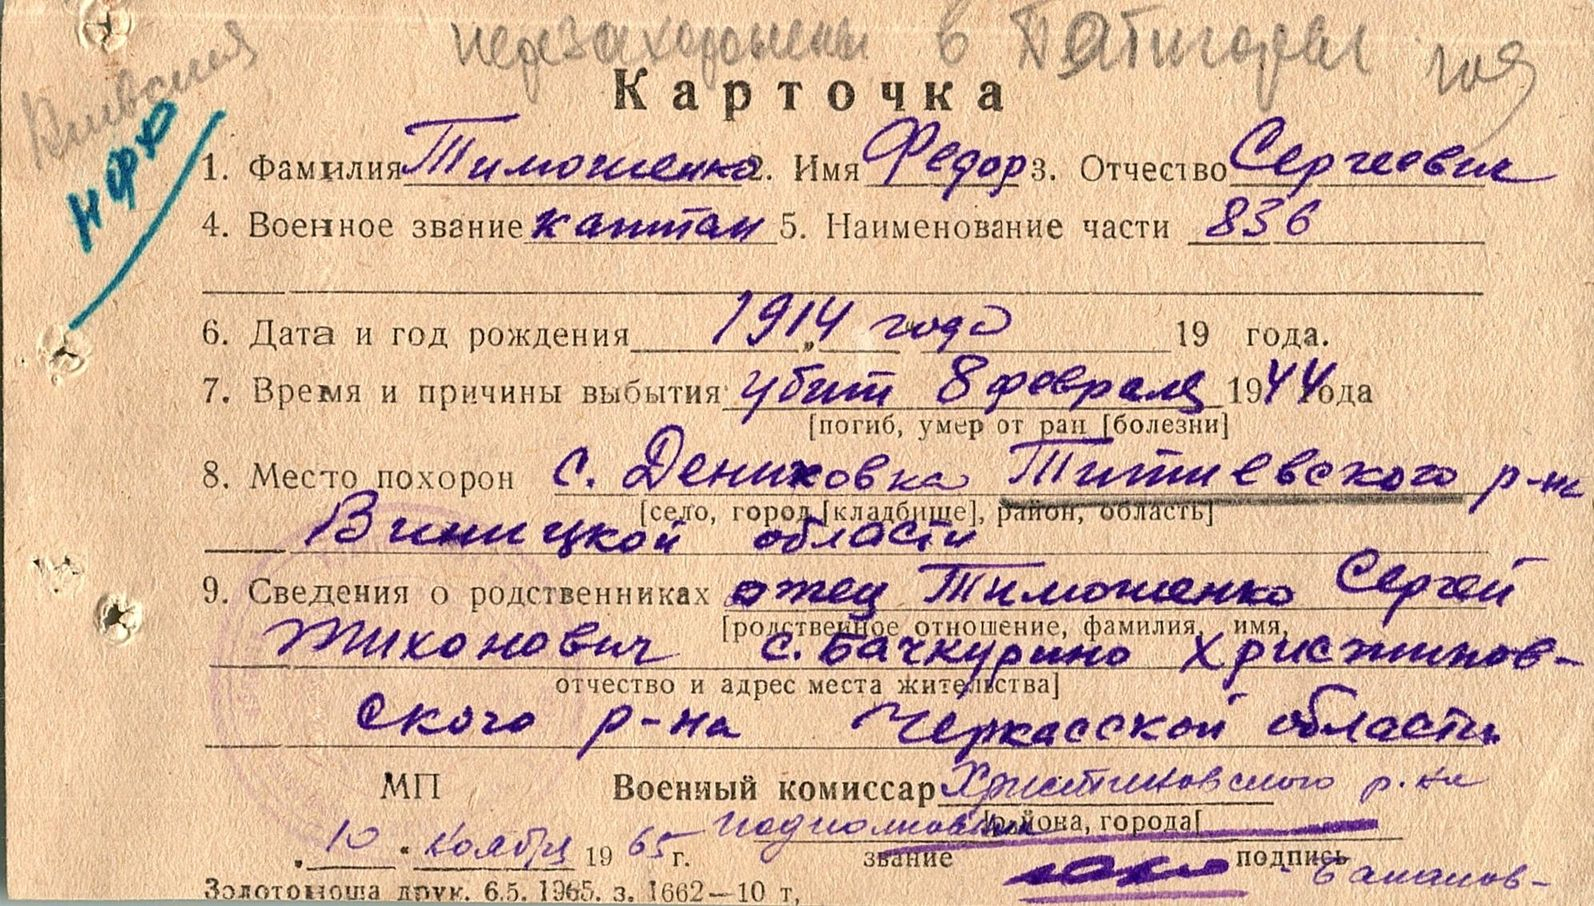 перезахоронен в
Киевская
нфх
Карточка
1. Фамилия Тимошенко 2. Имя Федор 3. Отчество Сергеевич
4. Военное звание капитан 5. Наименование части 836
6. Дата и год рождения 1914 года 19 года.
7. Время и причины выбытия убит 8 февраля 1944 года
[погиб, умер от ран [болезни]
8. Место похорон с. Дениховка Титиевского р-на
[село, город [кладбище], район, область]
Виницкой области
9. Сведения о родственниках отец Тимошенко Сергей
[родственное отношение, фамилия, имя,
Тихонович с. Бачкурино Христинов-
отчество и адрес места жительства]
ского р-на Черкасской области
МП Военный комиссар Христиновского р-на
подполковник [района, города[
„10“ ноября 1965 г. звание подпись
Золотоноша друк. 6.5. 1965. з. 1662—10 т,